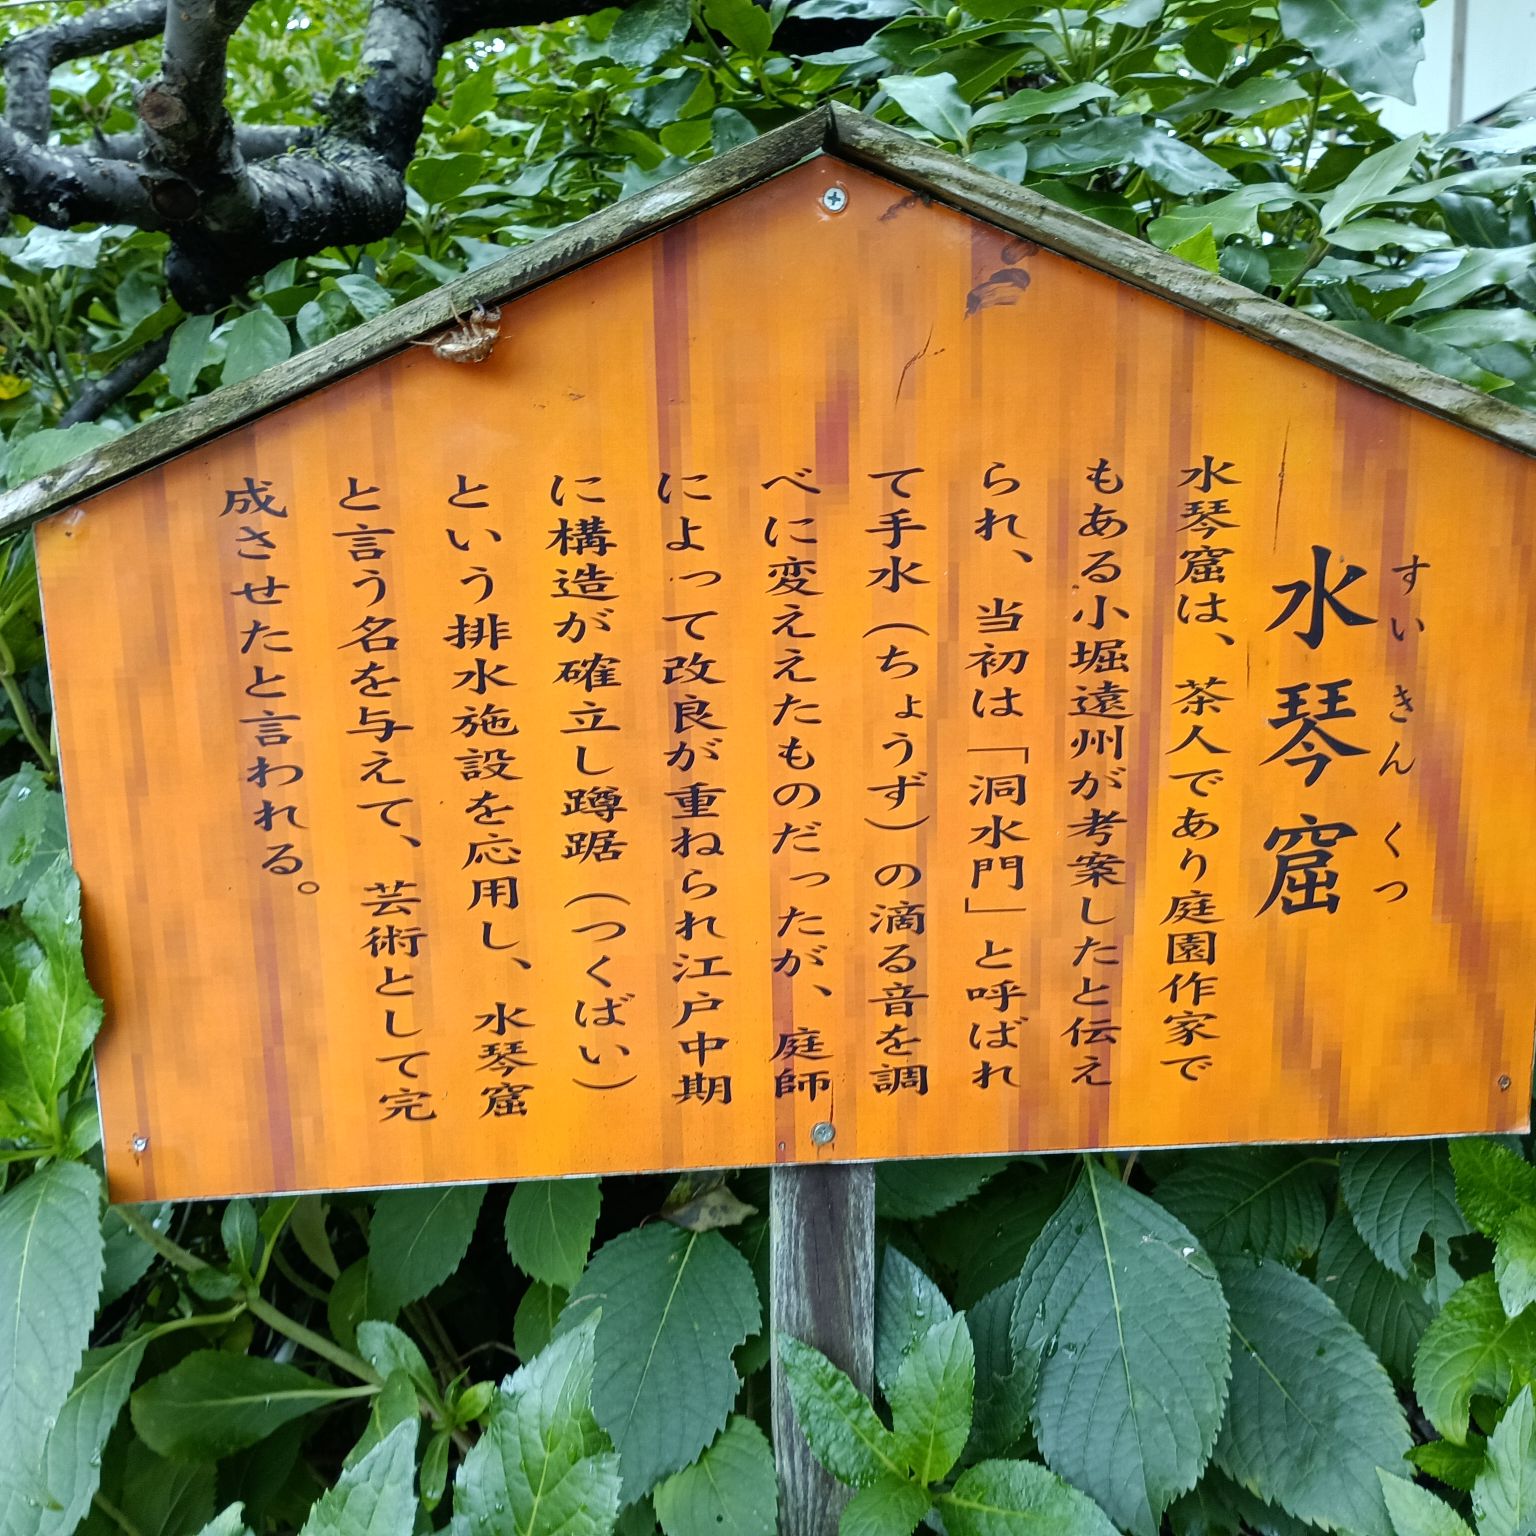 水琴窟
すいきんくつ
水琴窟は、茶人であり庭園作家で
もある小堀遠州が考案したと伝え
られ、当初は「洞水門」と呼ばれ
て手水（ちょうず）の滴る音を調
べに変ええたものだったが、庭師
によって改良が重ねられ江戸中期
に構造が確立し蹲踞（つくばい）
という排水施設を応用し、水琴窟
と言う名を与えて、芸術として完
成させたと言われる。